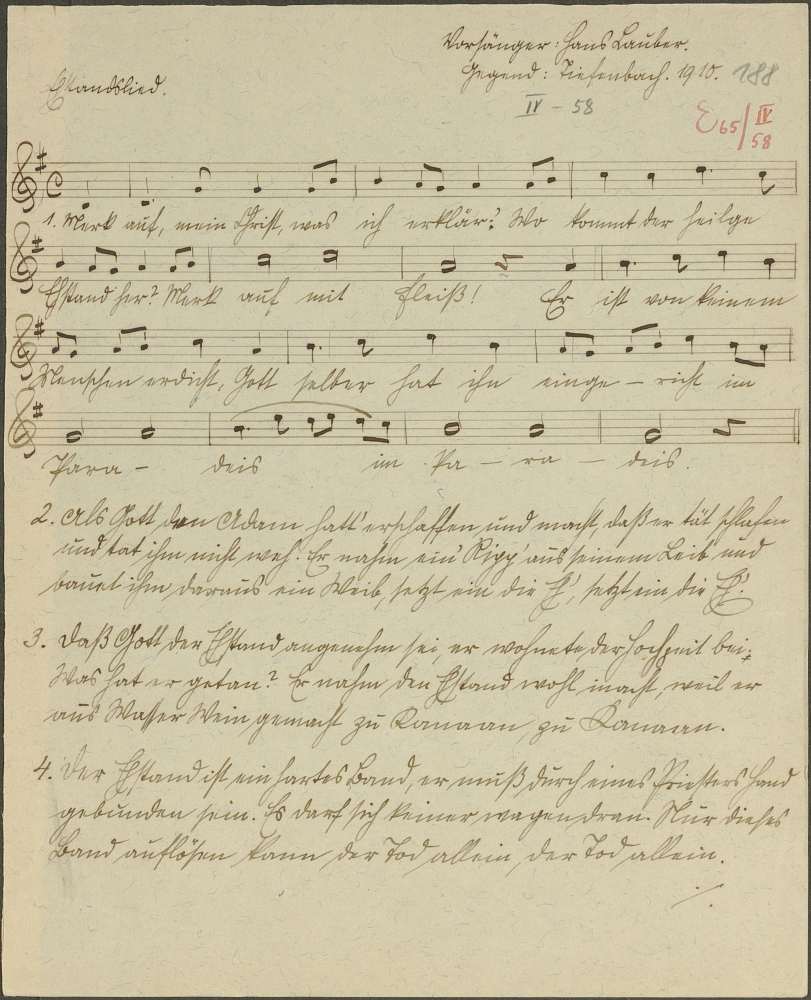 Vorsänger: Hans Lauber.
Gegend: Tiefenbach. 1910. 188
Ehstandslied.
IV - 58
E 65/IV 58
1. Merk auf, mein Christ, was ich erklär? Wo kommt der heilge
Ehstand her? Merk auf mit Fleiß! Er ist von keinem
Menschen erdicht, Gott selber hat ihn einge - richt im
Para - deis im Pa - ra - deis.
2. Als Gott den Adam hatt' erschaffen, und macht, daß er tät schlafen
und tat ihm nicht weh. Er nahm ein' Ripp' aus seinem Leib und
bauet ihm daraus ein Weib, setzt ein die Eh', setzt ein die Eh'.
3. Daß Gott der Ehstand angenehm sei, er wohnete der Hochzeit bei.
Was hat er getan? Er nahm den Ehstand wohl in acht, weil er
aus Wasser Wein gemacht zu Kanaan, zu Kanaan.
4. Der Ehstand ist ein hartes Band, er muß durch eines Priesters Hand
gebunden sein. Es darf sich keiner wagen dran. Nur dieses
Band auflösen kann der Tod allein, der Tod allein.